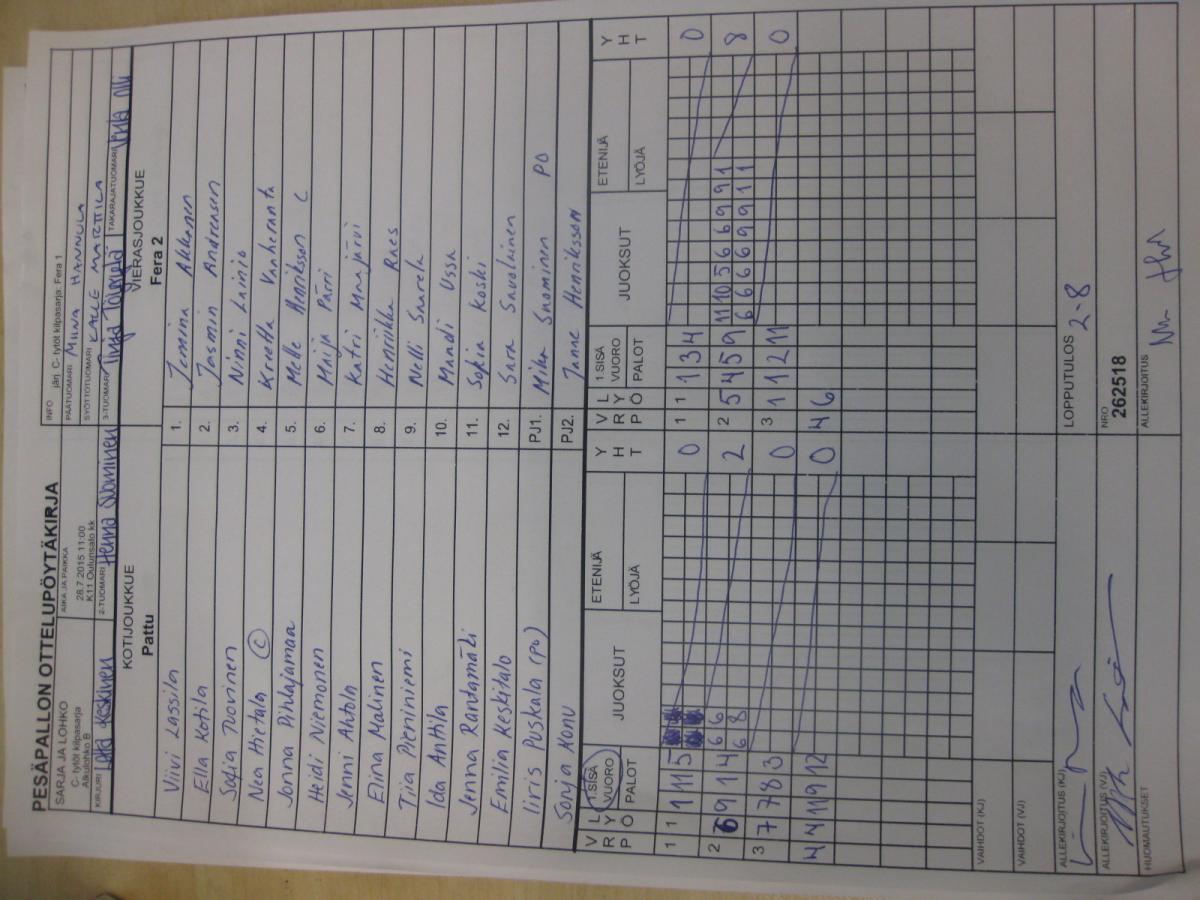 PESÄPALLON OTTELUPÖYTÄKIRJA
SARJA JA LOHKO
C- tytöt kilpasarja
Alkulohko B
AIKA JA PAIKKA
28.7.2015 11:00
K11 Oulunsalo kk
INFO järj. C- tytöt kilpasarja: Fera 1
PÄÄTUOMARI MIINA HANNULA
SYÖTTÖTUOMARI KALLE MARTTILA
KIRJURI Keskinen
2-TUOMARI Henna Suominen
3-TUOMARI
TAKARAJATUOMARI
KOTIJOUKKUE
Pattu
VIERASJOUKKUE
Fera 2
Viivi Lassila 1. Jemina Akkanen
Ella Kotila 2. Jasmin Andreasen
Sofia Tuovinen 3. Ninni Lainio
Nea Hietala C 4. Kreetta Vanharanta
Jonna Pihlajamaa 5. Melle Henriksson C
Heidi Niemonen 6. Maija Pärri
Jenni Ahtola 7. Katri Maijärvi
Elina Malinen 8. Henriikka Raes
Tiia Pieniniemi 9. Nelli Saarela
Ida Anttila 10. Mandi Ussa
Jenna Rantamäki 11. Sofia Koski
Emilia Keskitalo 12. Sara Savolainen
Iiris Puskala (PO) PJ1. Mika Suominen PO
Sonja Konu PJ2. Janne Henriksson
V R P L Y Ö 1.SISÄ VUORO PALOT JUOKSUT ETENIJÄ LYÖJÄ Y H T
V R P L Y Ö 1.SISÄ VUORO PALOT JUOKSUT ETENIJÄ LYÖJÄ Y H T
1 1 1 11 5 0 1 1 1 3 4 0
2 6 9 1 4 6 6 2 2 5 4 5 9 11 10 5 6 6 9 9 1 8
6 8 6 6 6 6 9 9 1 1
3 7 7 8 3 0 3 1 1 2 11 0
4 4 11 9 12 0 4 6
VAIHDOT (KJ)
VAIHDOT (VJ)
ALLEKIRJOITUS (KJ)
LOPPUTULOS 2-8
ALLEKIRJOITUS (VJ)
NRO
262518
HUOMAUTUKSET
ALLEKIRJOITUS